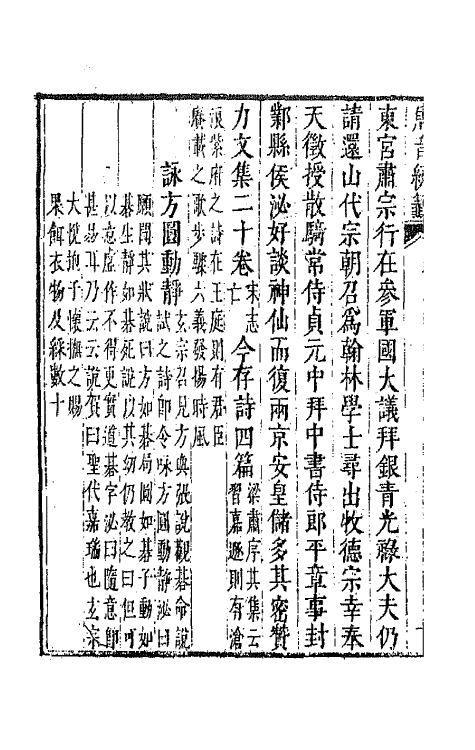 東宮肅宗行在參軍國大議拜銀青光祿大夫仍
請還山代宗朝召爲翰林學士尋出牧德宗幸奉
天徵授散騎常侍貞元中拜中書侍郎平章事封
鄴縣侯泌好談神仙而復兩京安皇儲多其密贊
力文集二十卷宋志亡今存詩四篇梁肅序其集云習嘉遯則有滄
浪紫府之詩在王庭則有君臣
賡載之歌步驟六義發揚時風
詠方圓動靜玄宗召見方與張說觀棊命說
試之詩即令咏方圓動靜泌曰
願聞其狀說曰方如棊局圓如棊子動如
棊生靜如棊死說以其幼仍教之曰但可
以意虛作不得更實道棊字泌曰隨意即
甚易耳乃云云說賀曰聖代嘉瑞也玄宗
大悅抱于懷撫之賜
果餌衣物及綵數十